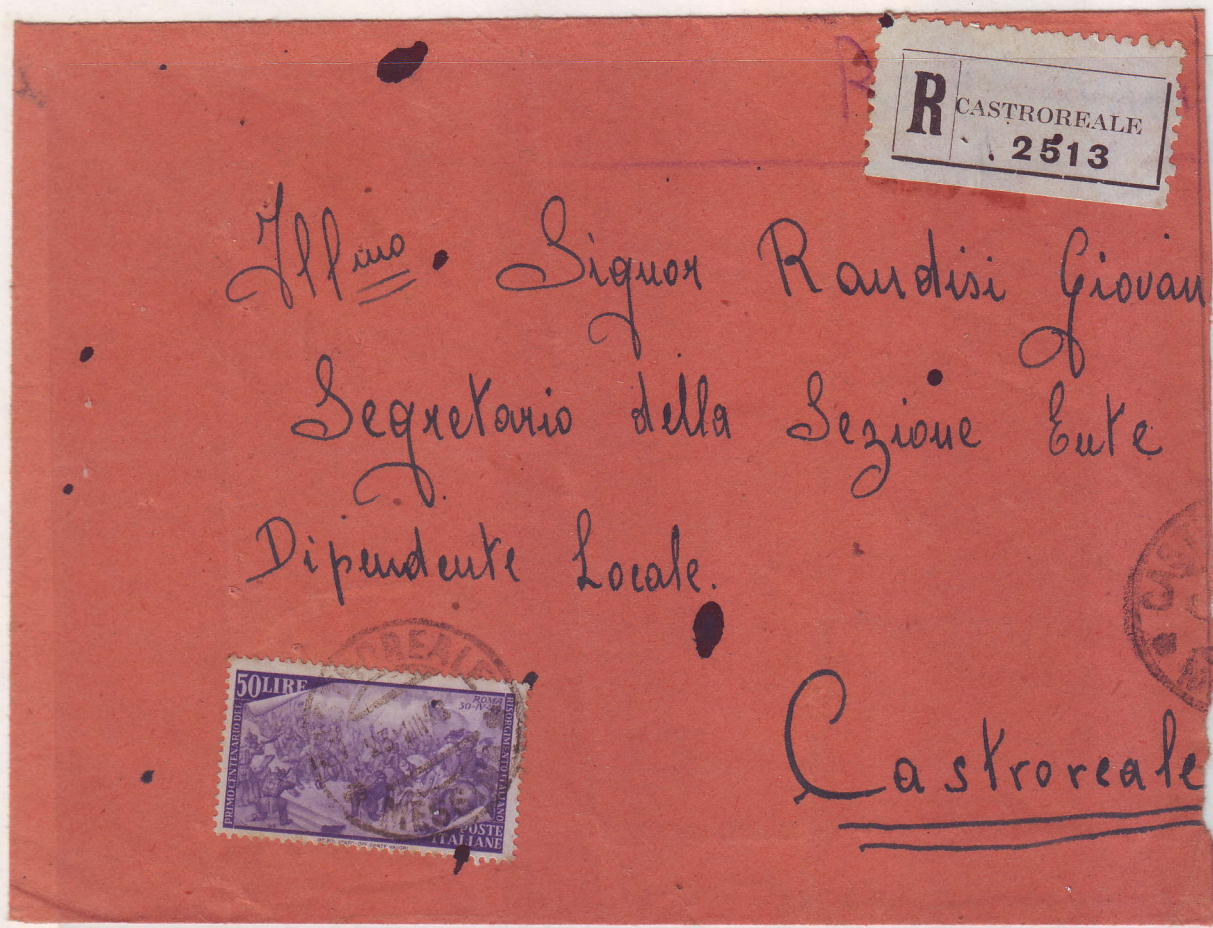 R CASTROREALE
2513
Illmo. Signor Randisi Giovan
Segretario della Sezione Ente
Dipendente Locale.
Castroreale
50 LIRE
ROMA
30-IV-
PRIMO CENTENARIO DEL
RISORGIMENTO ITALIANO
POSTE
ITALIANE